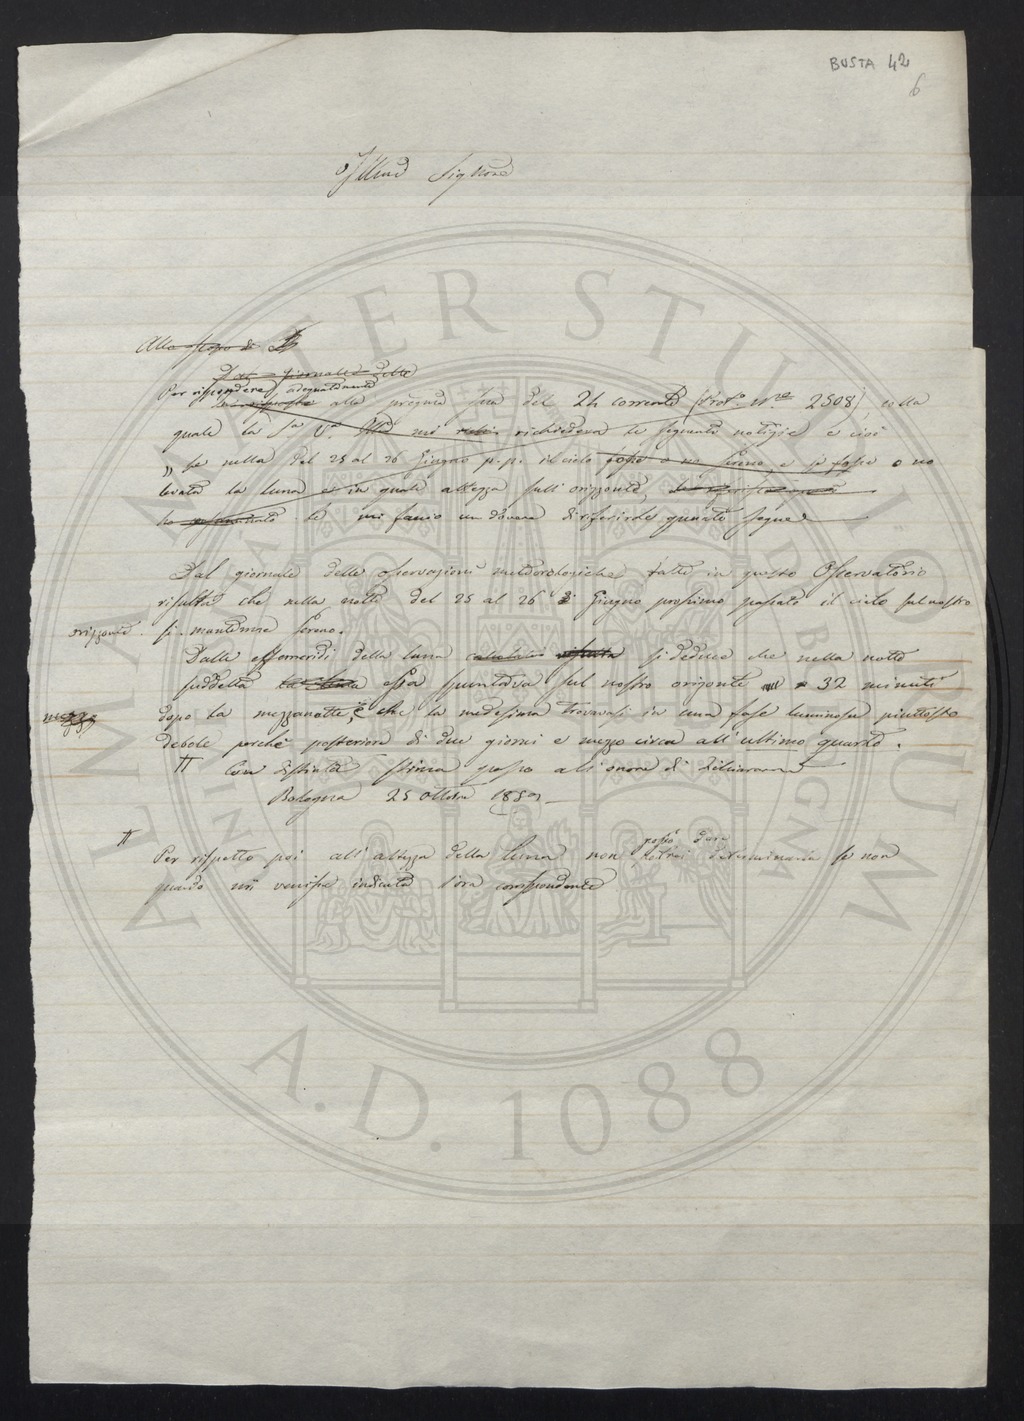 BUSTA 42
6
Illmo Signore
Allo scopo di
Dal giornale delle
Per rispondere adeguatamente
alla pregiata sua del 24 corrente (Prot.º Nº 2508), colla
quale la Sa. Va. Illma mi richiedeva le seguenti notizie e cioè
„ se nella del 25 al 26 Giugno p.p. il cielo fosse o no sereno, e se fosse o no
levata la luna e in quale altezza sull'orizzonte,
mi faccio un dovere di riferirle quanto segue
Dal giornale delle osservazioni meteorologiche fatte in questo Osservatorio
risulta che nella notte del 25 al 26 di Giugno prossimo passato il cielo sul nostro
orizzonte si mantenne sereno.
Dalle effemeridi della luna calcolate risulta si deduce che nella notte
suddetta la luna essa spuntava sul nostro orizonte 32 minuti
dopo la mezzanotte, e che la medesima trovavasi in una fase luminosa piuttosto
debole perchè posteriore di due giorni e mezzo circa all'ultimo quarto.
Con distinta stima passo all'onore di dichiararmi
Bologna 25 Ottobre 185
Per rispetto poi all'altezza della luna non potrei determinarla se non
posso dare
quando mi venisse indicata l'ora corrispondente
ALMA MATER STUDIORUM
A.D. 1088